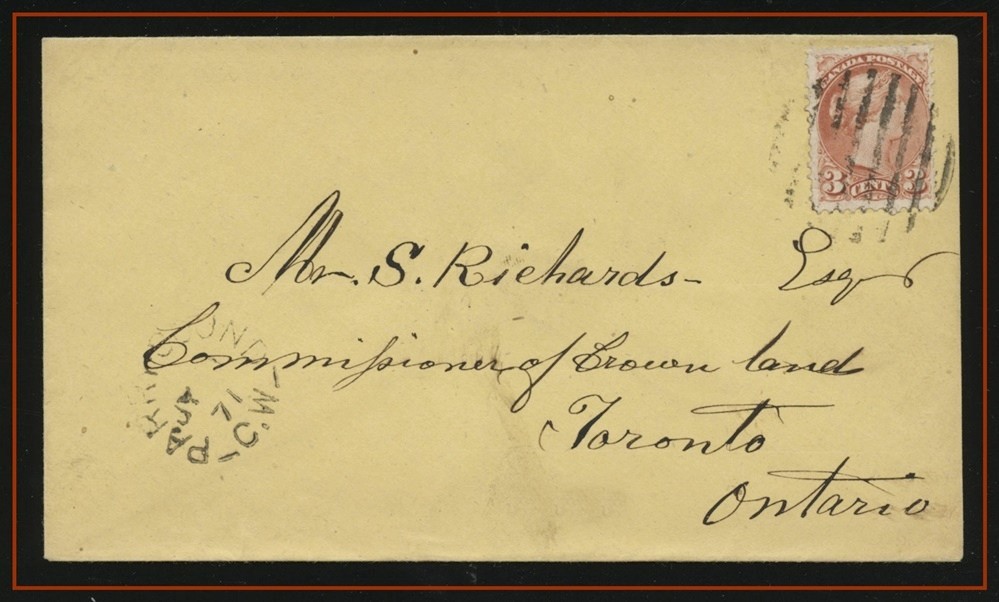 CANADA POSTAGE
3 CENTS 3
Mr. S. Richards- Esqr
Commissioner of Crown land
Toronto
Ontario